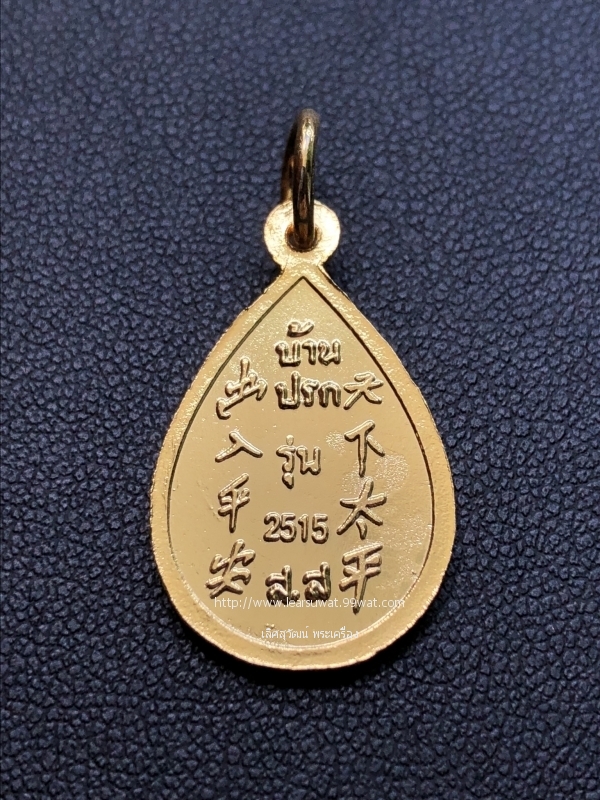 บ้าน
ปรก
รุ่น
2515
ส.ส
天下太平
出入平安
http://www.learsuwat.99wat.com
เลิศสุวัฒน์ พระเครื่อง